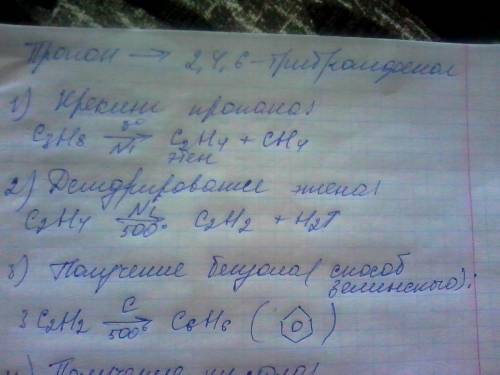 Пропан → 2,4,6-трибромфенол
1) Крекинг пропана:
C3H8 t° Ni → C2H4 + CH4
этен
2) Дегидрирование этена:
C2H4 Ni 500° → C2H2 + H2↑
3) Получение бензола (способ
Зелинского):
3C2H2 C 500° → C6H6 ( )